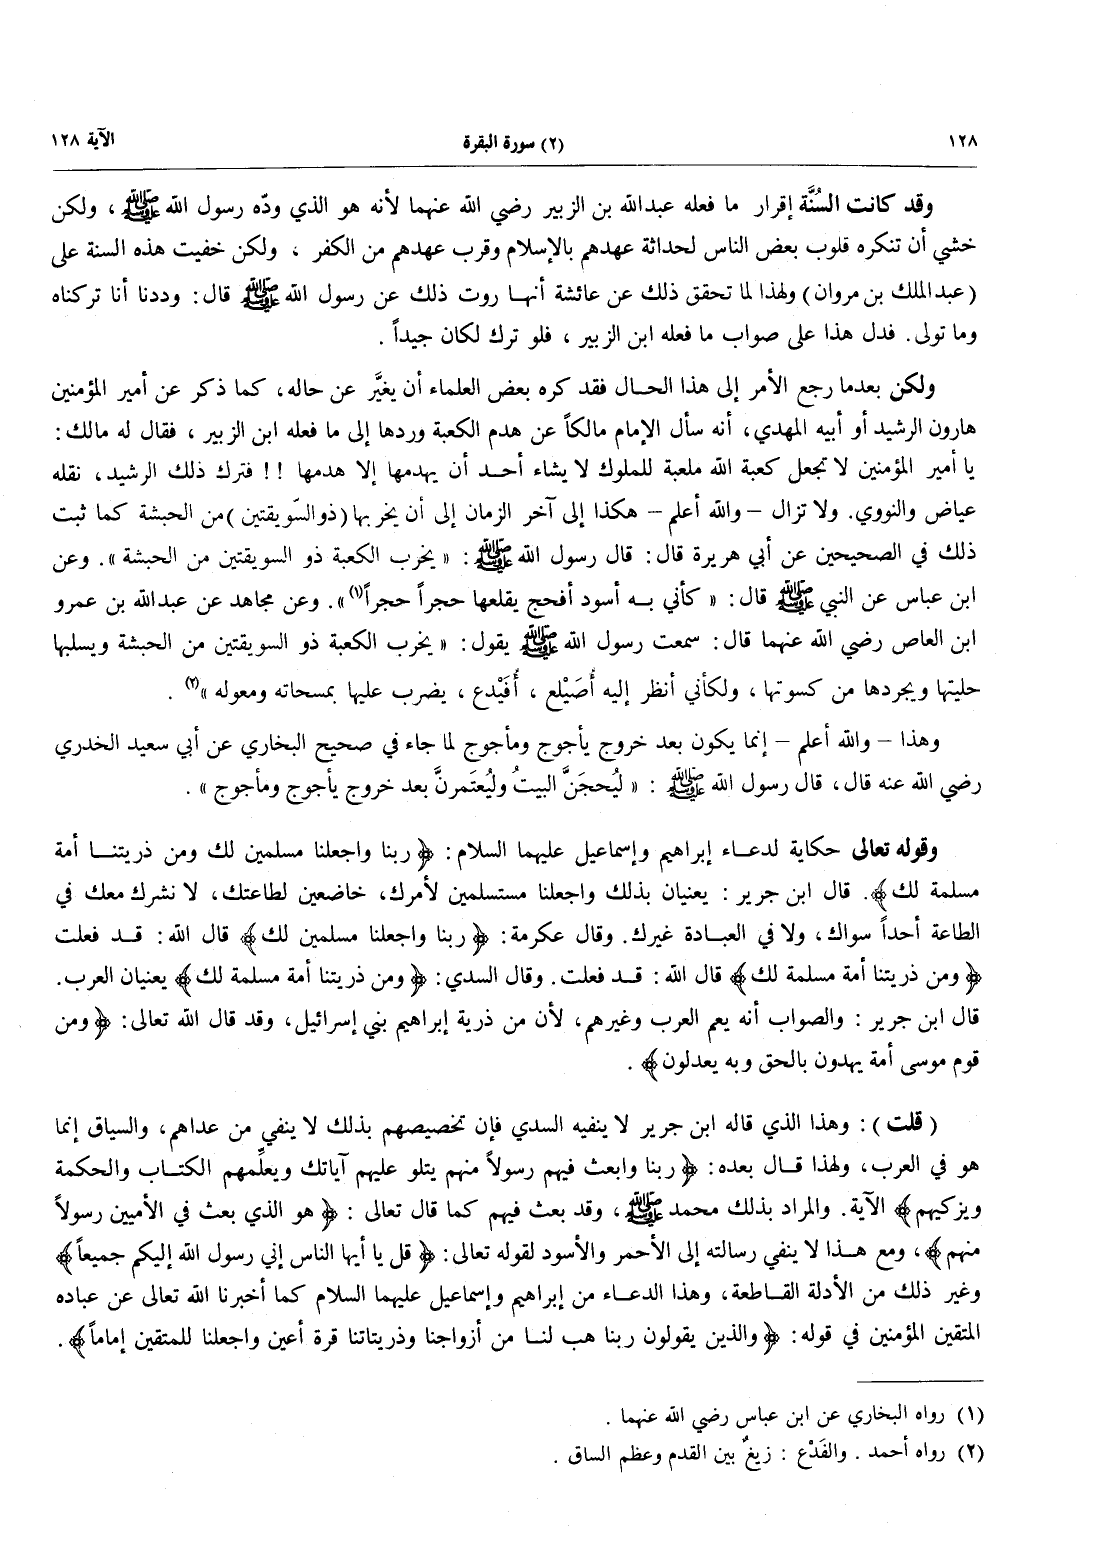 ١٢٨ (٢) سورة البقرة الآية ١٢٨
وقد كانت السُنَّة إقرار ما فعله عبدالله بن الزبير رضي الله عنهما لأنه هو الذي ودّه رسول الله ﷺ ، ولكن
خشي أن تنكره قلوب بعض الناس لحداثة عهدهم بالإسلام وقرب عهدهم من الكفر ، ولكن خفيت هذه السنة على
(عبدالملك بن مروان) ولهذا لما تحقق ذلك عن عائشة أنهـا روت ذلك عن رسول الله ﷺ قال: وددنا أنا تركناه
وما تولى. فدل هذا على صواب ما فعله ابن الزبير ، فلو ترك لكان جيداً .
ولكن بعدما رجع الأمر إلى هذا الحـال فقد كره بعض العلماء أن يغيَّر عن حاله، كما ذكر عن أمير المؤمنين
هارون الرشيد أو أبيه المهدي، أنه سأل الإمام مالكاً عن هدم الكعبة وردها إلى ما فعله ابن الزبير ، فقال له مالك:
يا أمير المؤمنين لا تجعل كعبة الله ملعبة للملوك لا يشاء أحـد أن يهدمها إلا هدمها !! فترك ذلك الرشيد، نقله
عياض والنووي. ولا تزال – والله أعلم – هكذا إلى آخر الزمان إلى أن يخربها (ذوالسّويقتين) من الحبشة كما ثبت
ذلك في الصحيحين عن أبي هريرة قال: قال رسول الله ﷺ : « يخرب الكعبة ذو السويقتين من الحبشة ». وعن
ابن عباس عن النبي ﷺ قال: « كأني بـه أسود أفحج يقلعها حجراً حجراً(١)». وعن مجاهد عن عبدالله بن عمرو
ابن العاص رضي الله عنهما قال: سمعت رسول الله ﷺ يقول: « يخرب الكعبة ذو السويقتين من الحبشة ويسلبها
حليتها ويجردها من كسوتها ، ولكأني أنظر إليه أُصَيْلع ، أُفَيْدع ، يضرب عليها بمسحاته ومعوله »(٢) .
وهذا – والله أعلم – إنما يكون بعد خروج يأجوج ومأجوج لما جاء في صحيح البخاري عن أبي سعيد الخدري
رضي الله عنه قال، قال رسول الله ﷺ : « ليُحجَنَّ البيتُ وليُعتَمرنَّ بعد خروج يأجوج ومأجوج » .
وقوله تعالى حكاية لدعـاء إبراهيم وإسماعيل عليهما السلام: ﴿ ربنا واجعلنا مسلمين لك ومن ذريتنـا أمة
مسلمة لك ﴾. قال ابن جرير : يعنيان بذلك واجعلنا مستسلمين لأمرك، خاضعين لطاعتك، لا نشرك معك في
الطاعة أحداً سواك، ولا في العبـادة غيرك. وقال عكرمة: ﴿ ربنا واجعلنا مسلمين لك ﴾ قال الله: قـد فعلت
﴿ ومن ذريتنا أمة مسلمة لك ﴾ قال الله : قـد فعلت. وقال السدي: ﴿ ومن ذريتنا أمة مسلمة لك ﴾ يعنيان العرب.
قال ابن جرير : والصواب أنه يعم العرب وغيرهم، لأن من ذرية إبراهيم بني إسرائيل، وقد قال الله تعالى: ﴿ ومن
قوم موسى أمة يهدون بالحق وبه يعدلون ﴾ .
( قلت ) : وهذا الذي قاله ابن جرير لا ينفيه السدي فإن تخصيصهم بذلك لا ينفي من عداهم، والسياق إنما
هو في العرب، ولهذا قـال بعده: ﴿ ربنا وابعث فيهم رسولاً منهم يتلو عليهم آياتك ويعلِّمهم الكتـاب والحكمة
ويزكيهم ﴾ الآية. والمراد بذلك محمد ﷺ ، وقد بعث فيهم كما قال تعالى : ﴿ هو الذي بعث في الأميين رسولاً
منهم ﴾، ومع هـذا لا ينفي رسالته إلى الأحمر والأسود لقوله تعالى: ﴿ قل يا أيها الناس إني رسول الله إليكم جميعاً ﴾
وغير ذلك من الأدلة القـاطعة، وهذا الدعـاء من إبراهيم وإسماعيل عليهما السلام كما أخبرنا الله تعالى عن عباده
المتقين المؤمنين في قوله: ﴿ والذين يقولون ربنا هب لنـا من أزواجنا وذرياتنا قرة أعين واجعلنا للمتقين إماماً ﴾.
(١) رواه البخاري عن ابن عباس رضي الله عنهما .
(٢) رواه أحمد . والفَدْع : زيغٌ بين القدم وعظم الساق .